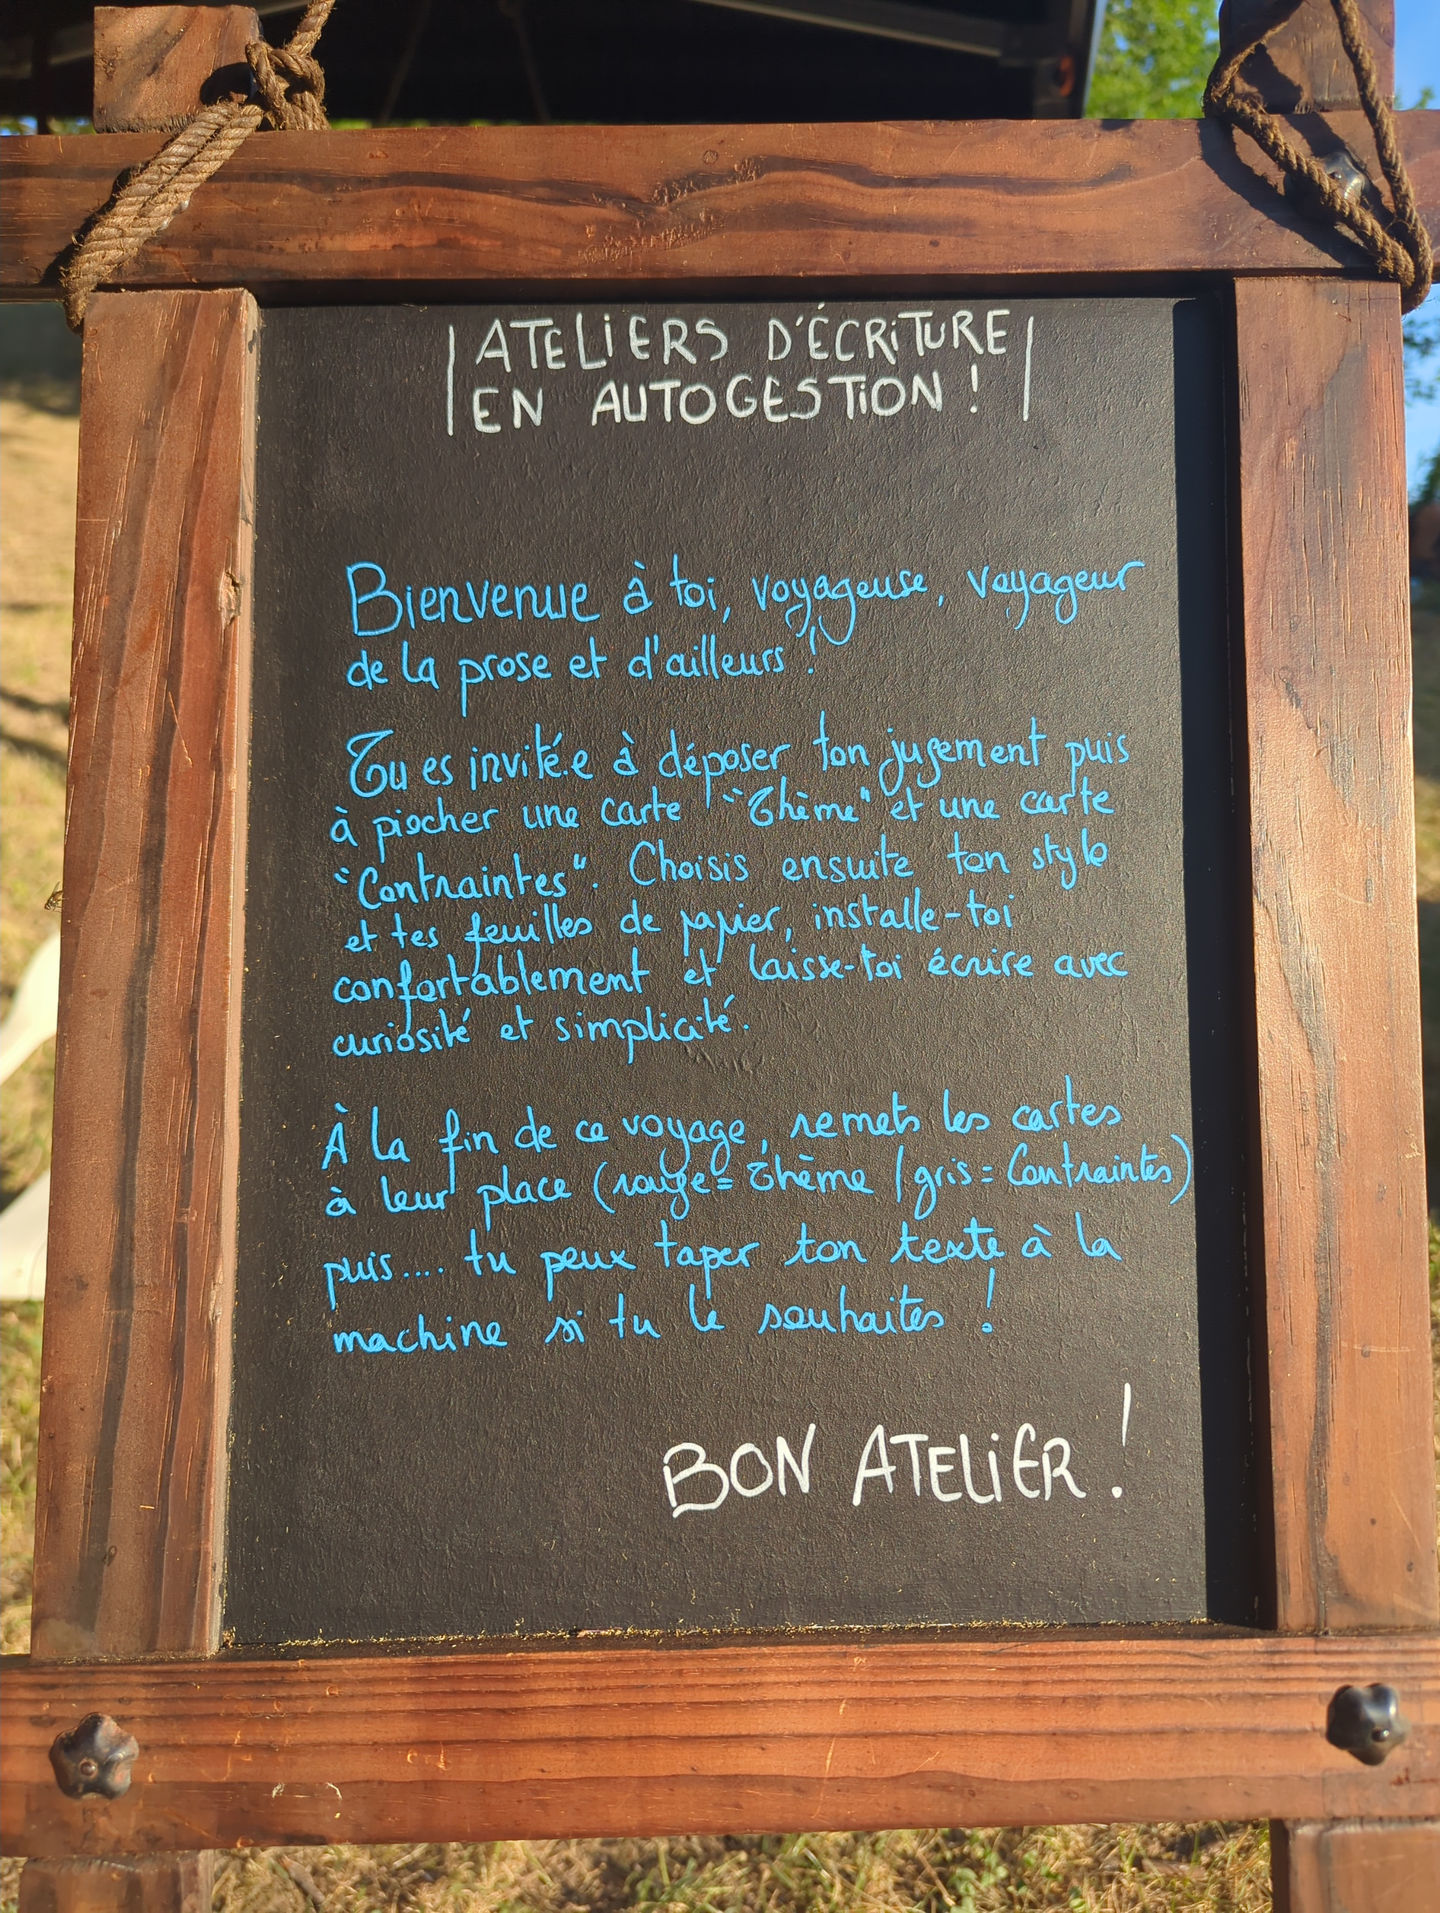 ATELIERS D'ÉCRITURE
EN AUTOGESTION !
Bienvenue à toi, voyageuse, voyageur
de la prose et d'ailleurs !
Tu es invité.e à déposer ton jugement puis
à piocher une carte "Thème" et une carte
"Contraintes". Choisis ensuite ton stylo
et tes feuilles de papier, installe-toi
confortablement et laisse-toi écrire avec
curiosité et simplicité.
À la fin de ce voyage, remets les cartes
à leur place (rouge = Thème / gris = Contraintes)
puis.... tu peux taper ton texte à la
machine si tu le souhaites !
BON ATELIER !